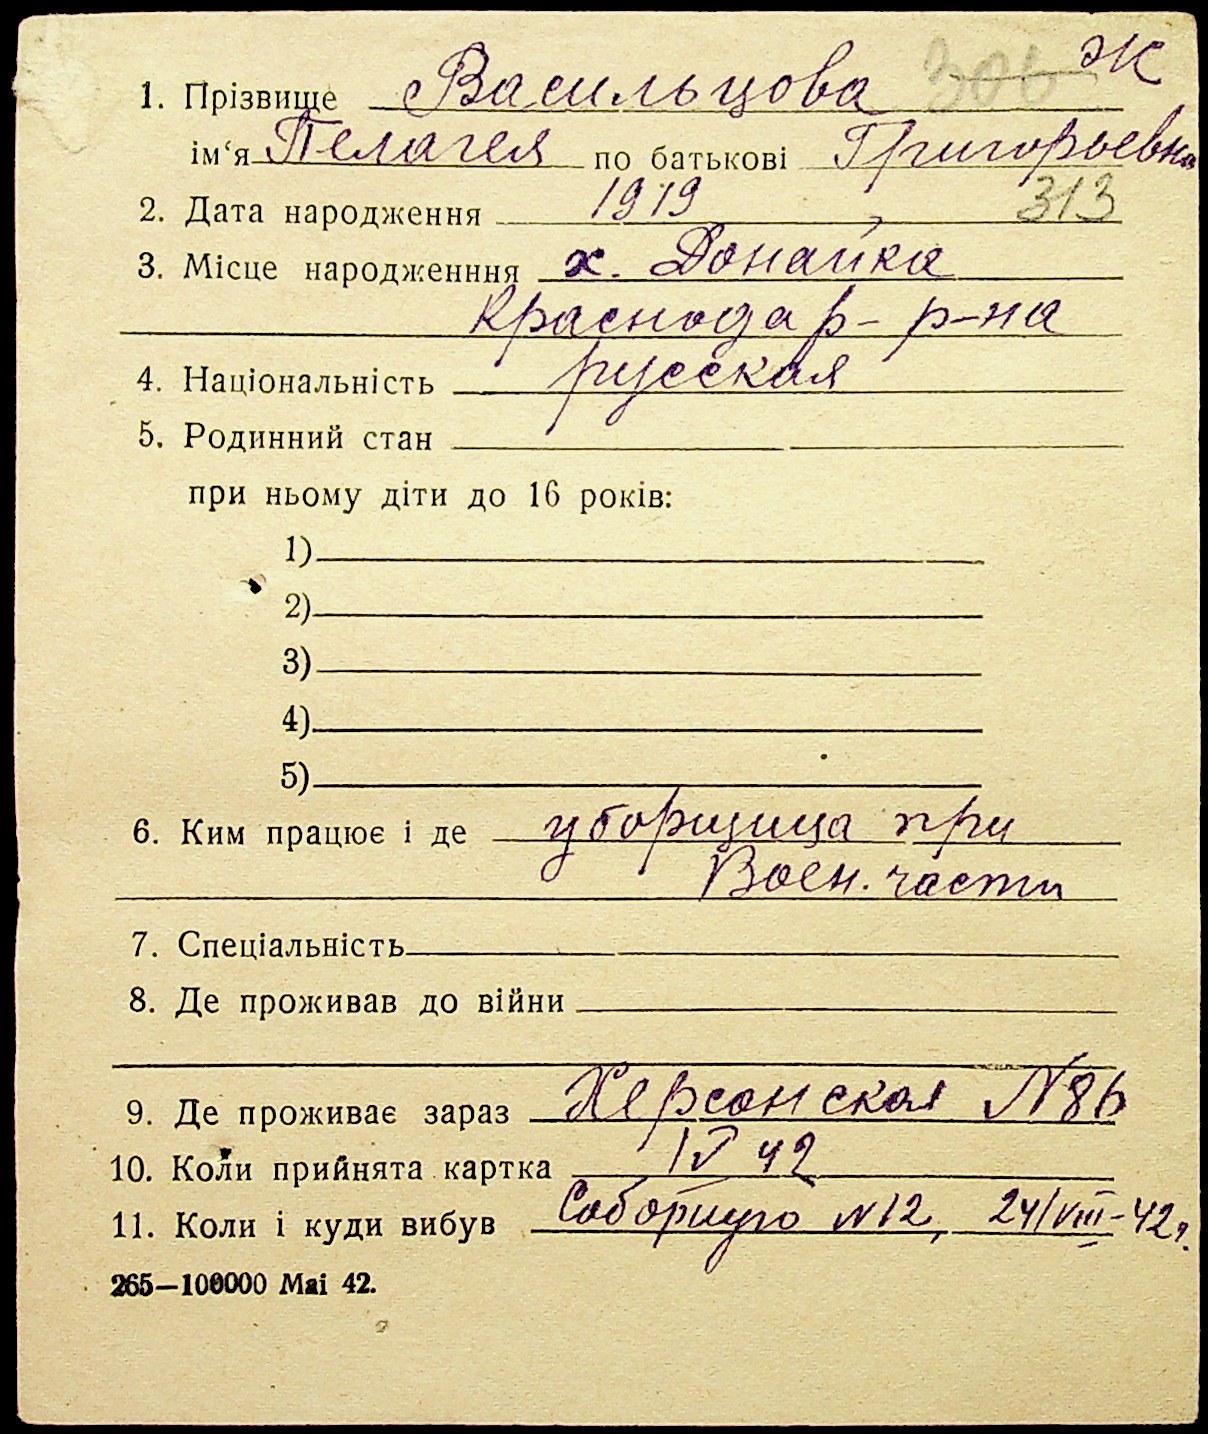 Ж
1. Прізвище Васильцова 306
ім‘я Пелагея по батькові Григорьевна
2. Дата народження 1919 313
3. Місце народженння х. Донайка
Краснодар- р-на
4. Національність русская
5. Родинний стан
при ньому діти до 16 років:
1)
2)
3)
4)
5)
6. Ким працює і де уборщица при
Воен. части
7. Спеціальність
8. Де проживав до війни
9. Де проживає зараз Херсонская N 86
10. Коли прийнята картка IV 42
11. Коли і куди вибув Соборную N 12, 24/VIII-42г.
265—100000 Маі 42.